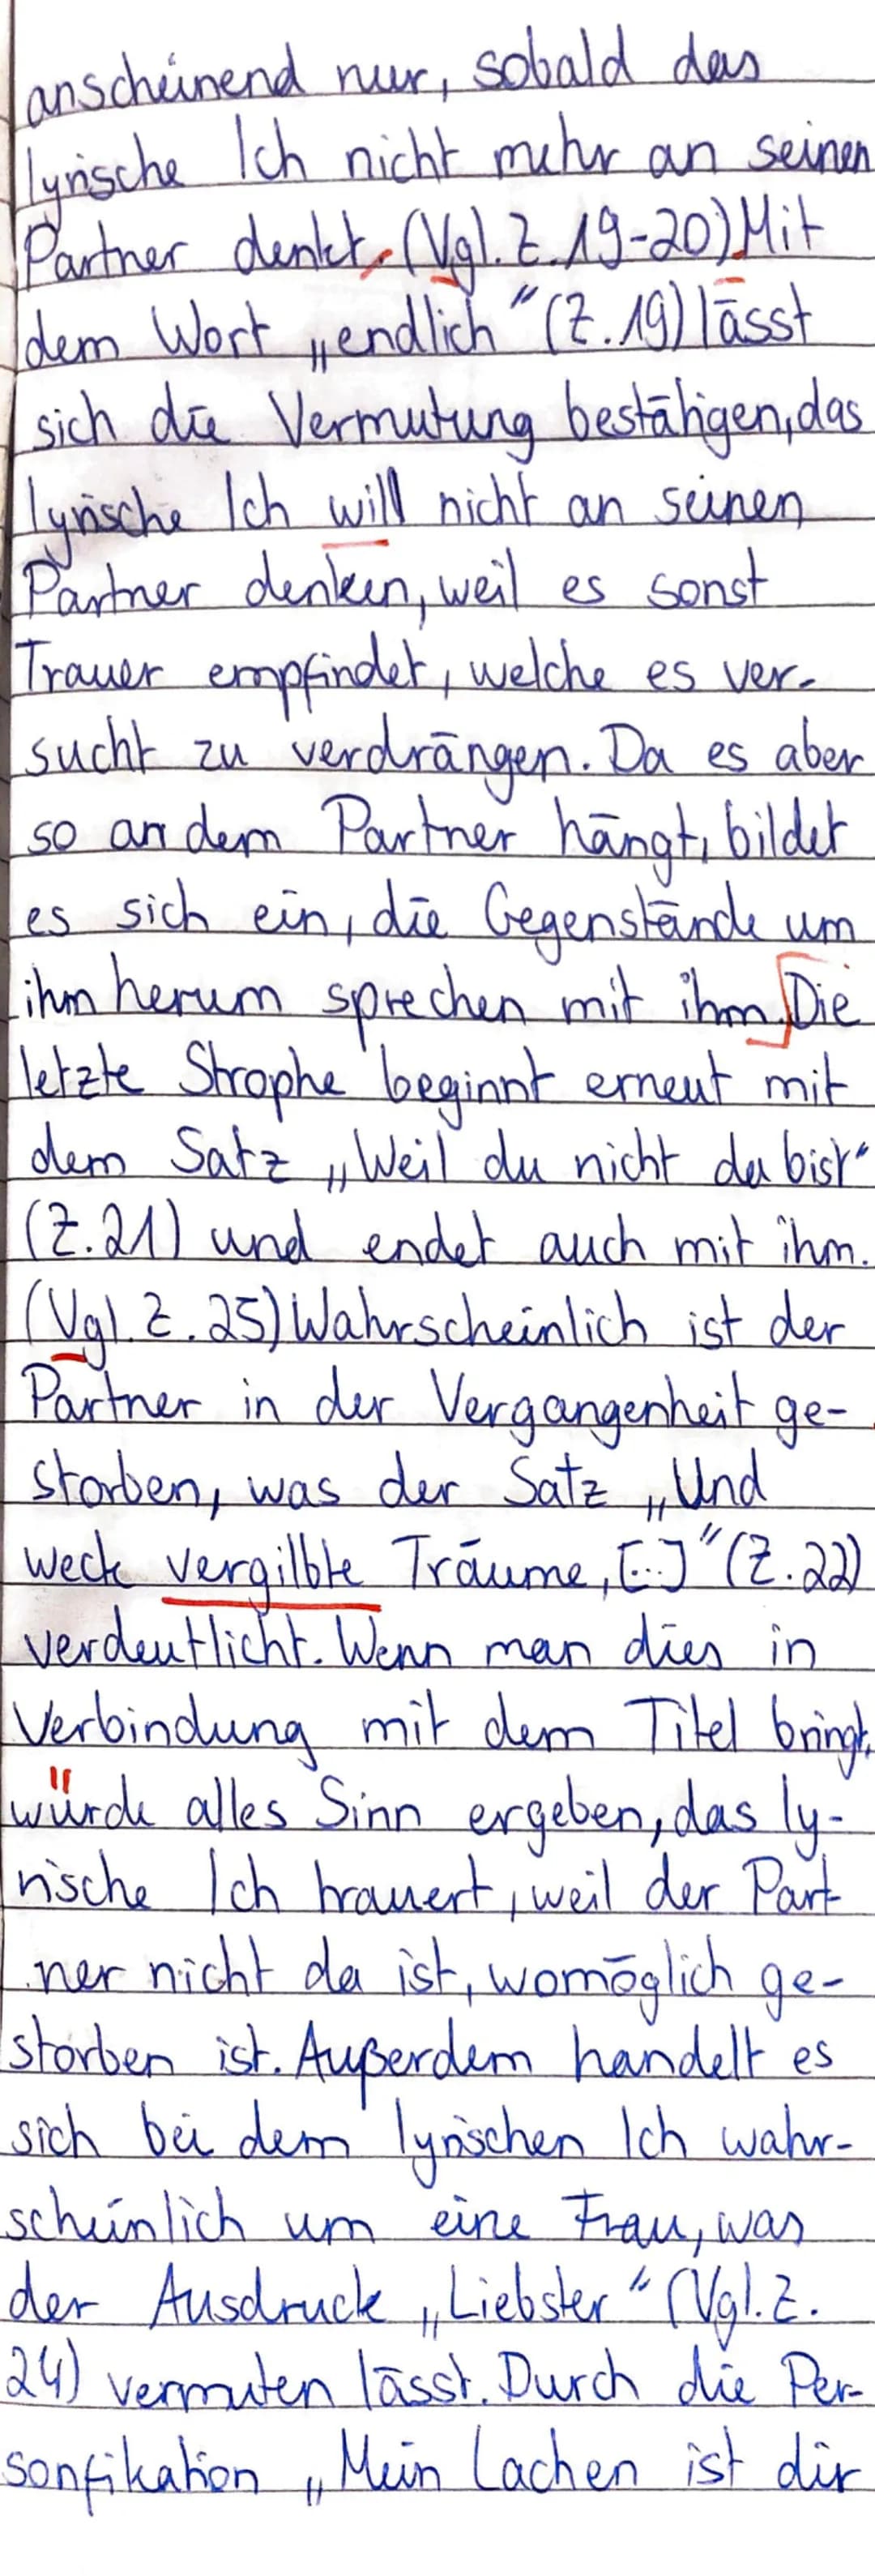 anscheinend nur, sobald das
lyrische Ich nicht mehr an seinen
Partner denkt. (Vgl. Z. 19-20). Mit
dem Wort „endlich" (Z. 19) lässt
sich die Vermutung bestätigen, das
lyrische Ich will nicht an seinen
Partner denken, weil es sonst
Trauer empfindet, welche es ver-
sucht zu verdrängen. Da es aber
so an dem Partner hängt, bildet
es sich ein, die Gegenstände um
ihm herum sprechen mit ihm. Die
letzte Strophe beginnt erneut mit
dem Satz „Weil du nicht da bist"
(Z. 21) und endet auch mit ihm.
(Vgl. Z. 25) Wahrscheinlich ist der
Partner in der Vergangenheit ge-
storben, was der Satz „Und
weck vergilbte Träume, [...]" (Z. 22)
verdeutlicht. Wenn man dies in
Verbindung mit dem Titel bringt,
würde alles Sinn ergeben, das ly-
rische Ich trauert, weil der Part
ner nicht da ist, womöglich ge-
storben ist. Außerdem handelt es
sich bei dem lyrischen Ich wahr-
scheinlich um eine Frau, was
der Ausdruck „Liebster" (Vgl. Z.
24) vermuten lässt. Durch die Per-
sonfikation „Mein Lachen ist dir